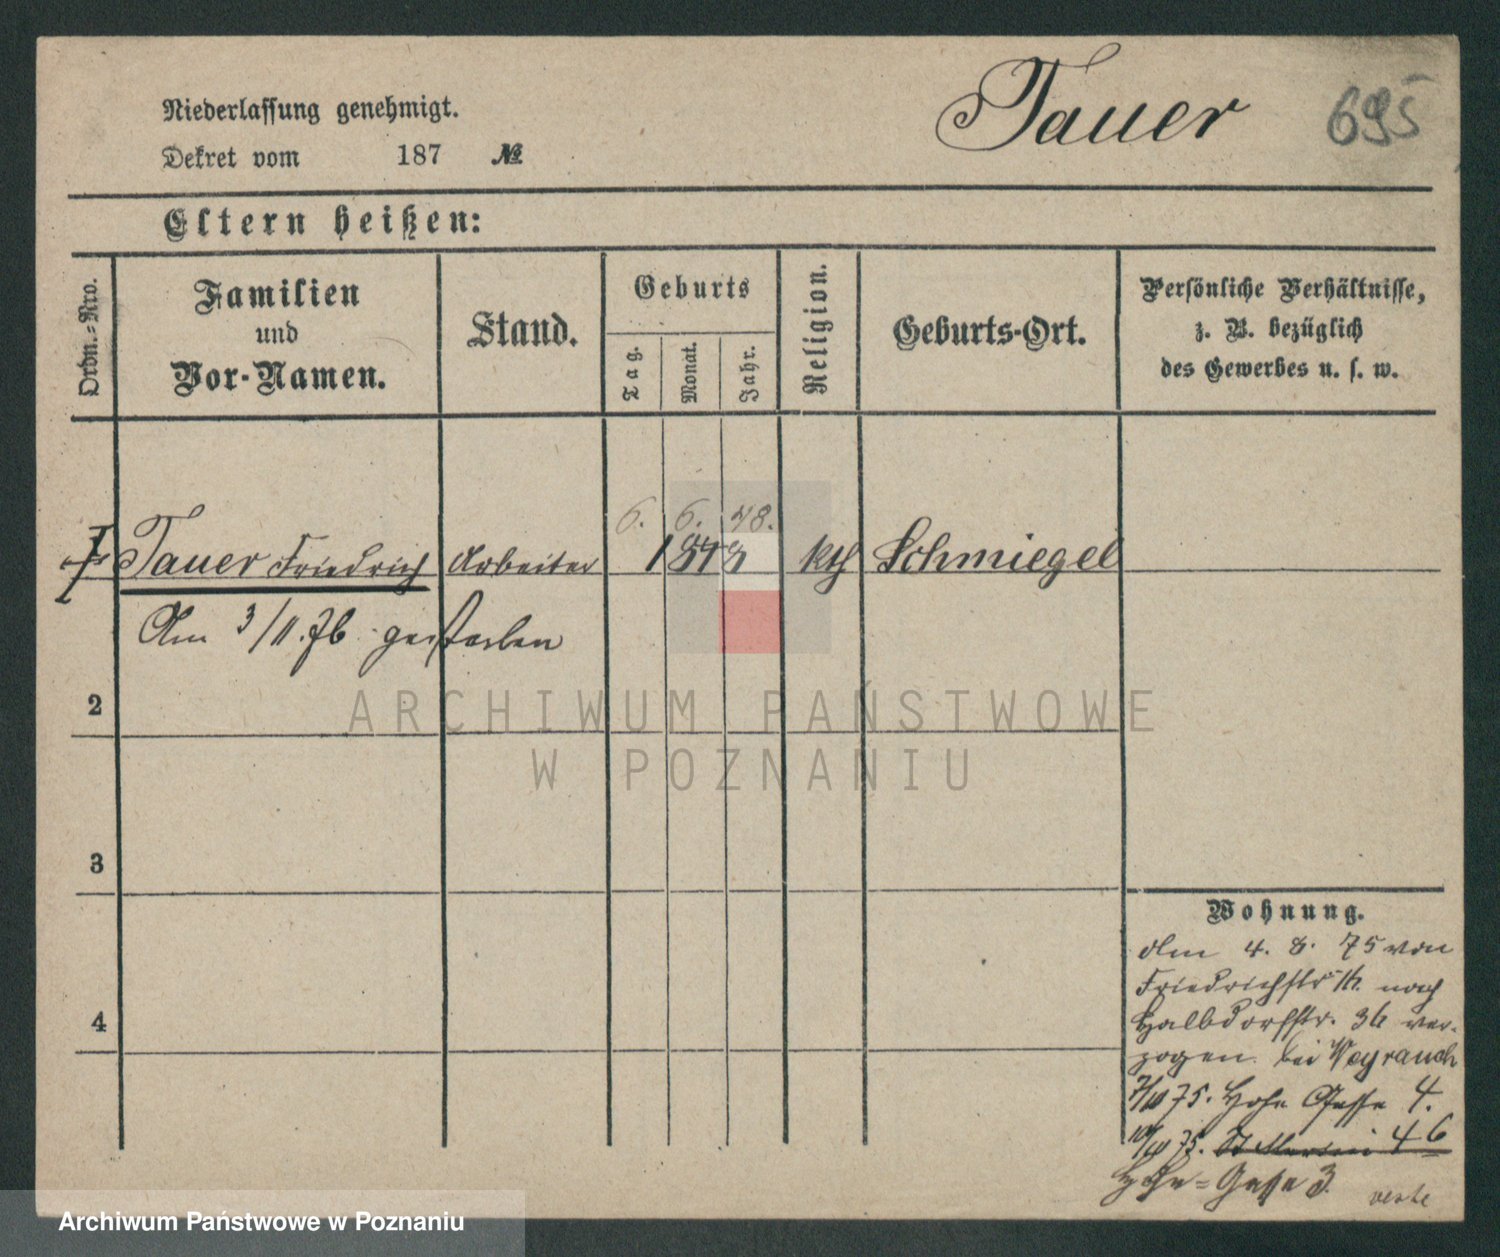 Niederlassung genehmigt.
Dekret vom 187 №
Tauer
695
Eltern heißen:
Ordn.-Nro.
Familien
und
Vor-Namen.
Stand.
Geburts
Tag.
Monat.
Jahr.
Religion.
Geburts-Ort.
Persönliche Verhältnisse,
z. B. bezüglich
des Gewerbes u. s. w.
6. 6. 48.
Tauer Friedrich Arbeiter 1848 kth Schmiegel
Am 3/11.76 gestorben
2
3
4
Wohnung.
Am 4. 8. 75 von
Friedrichstr. nach
Halbdorfstr. 36 ver-
zogen bei Weyrauch
7/10 75. Hohe Gasse 4.
/10 75. St Martin 46
Hohe-Gasse 3.
verte
ARCHIWUM PAŃSTWOWE
W POZNANIU
Archiwum Państwowe w Poznaniu